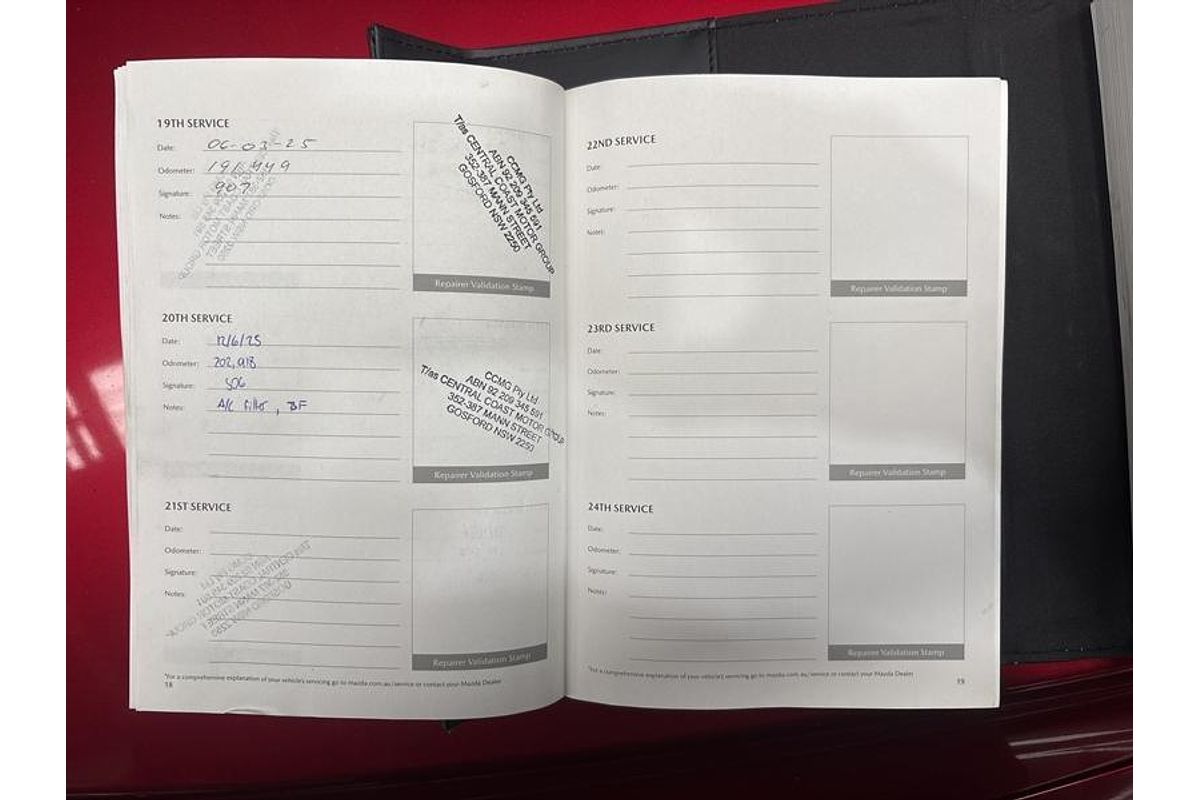 19TH SERVICE
Date: 06-03-25
Odometer: 191,449
Signature: 907
Notes:
CCMG Pty Ltd
ABN 92 209 345 691
T/as CENTRAL COAST MOTOR GROUP
352-387 MANN STREET
GOSFORD NSW 2250
Repairer Validation Stamp
20TH SERVICE
Date: 12/6/25
Odometer: 202,918
Signature: 506
Notes: A/C Filter, BF
CCMG Pty Ltd
ABN 92 209 345 691
T/as CENTRAL COAST MOTOR GROUP
352-387 MANN STREET
GOSFORD NSW 2250
Repairer Validation Stamp
21ST SERVICE
Date:
Odometer:
Signature:
Notes:
Repairer Validation Stamp
*For a comprehensive explanation of your vehicle's servicing go to mazda.com.au/service or contact your Mazda Dealer
18
22ND SERVICE
Date:
Odometer:
Signature:
Notes:
Repairer Validation Stamp
23RD SERVICE
Date:
Odometer:
Signature:
Notes:
Repairer Validation Stamp
24TH SERVICE
Date:
Odometer:
Signature:
Notes:
Repairer Validation Stamp
*For a comprehensive explanation of your vehicle's servicing go to mazda.com.au/service or contact your Mazda Dealer
19